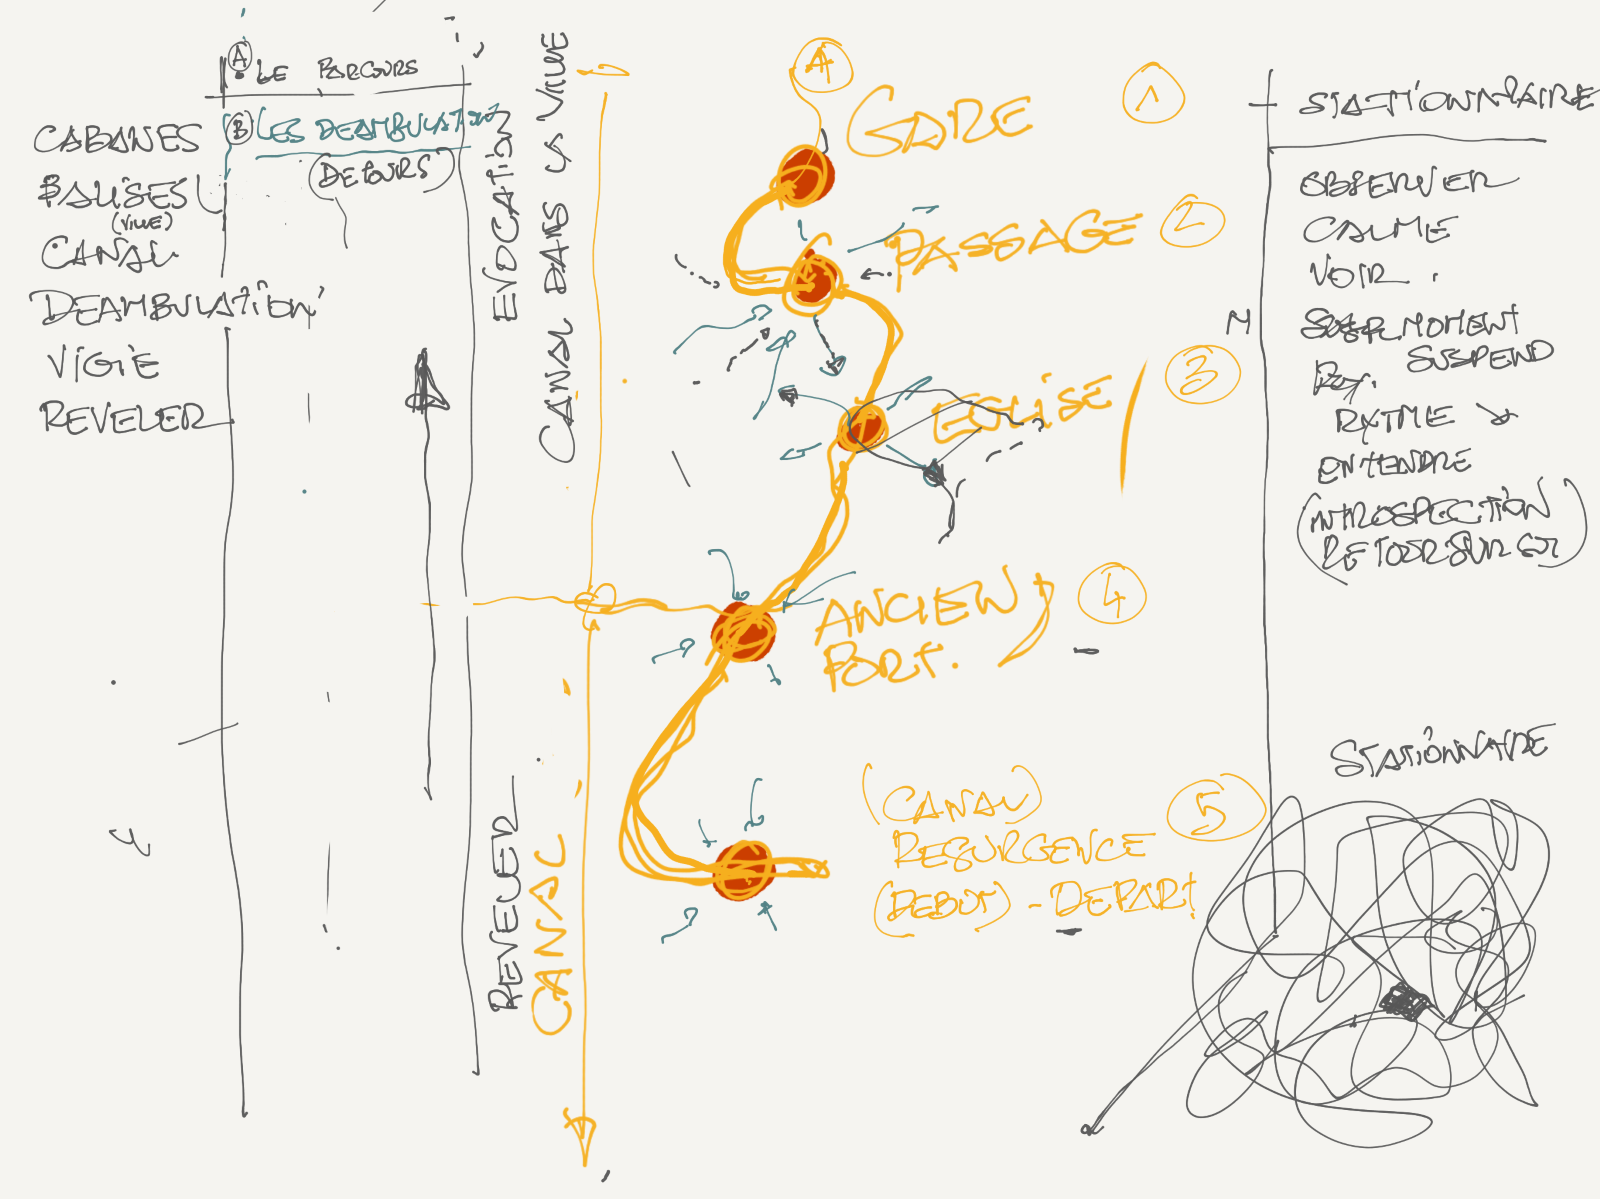 A
LE PARCOURS
B
LES DEAMBULATION
(DETOURS)
CABANES
BALISES
(VILLE)
CANAL
DEAMBULATION
VIGIE
REVELER
EVOCATION
CANAL DANS LA VILLE
REVELER
CANAL
A
GARE
1
PASSAGE
2
EGLISE
3
ANCIEN
PORT.
4
(CANAL)
RESURGENCE
(DEBUT) - DEPART
5
STATIONNAIRE
OBSERVER
CALME
VOIR.
MOMENT
SUSPEND
RYTME
ENTENDRE
(INTROSPECTION
RETOUR SUR SOI)
STATIONNAIRE